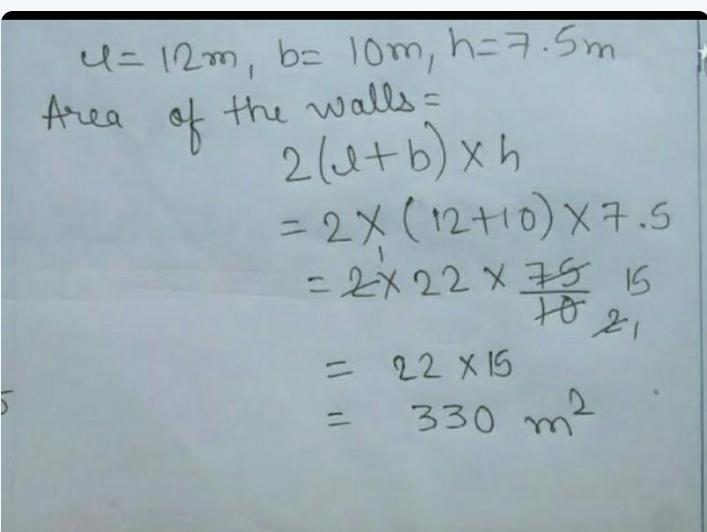 l = 12m, b = 10m, h = 7.5m
Area of the walls =
2(l+b) × h
= 2 × (12+10) × 7.5
= 2 × 22 × 75/10 1 15 2 1
= 22 × 15
= 330 m²
5